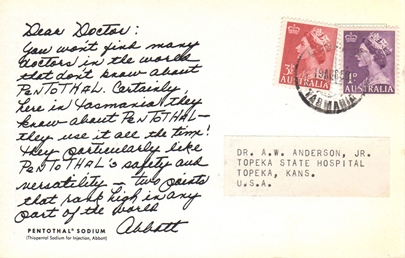 Dear Doctor:
You won't find many
doctors in the world
that don't know about
PENTOTHAL. Certainly,
here in Tasmania they
know about PENTOTHAL—
they use it all the time!
They particularly like
PENTOTHAL's safety and
versatility — two points
that rank high in any
part of the world
Abbott
PENTOTHAL® SODIUM
(Thiopental Sodium for Injection, Abbott)
AUSTRALIA
AUSTRALIA
TASMANIA
DR. A.W. ANDERSON, JR.
TOPEKA STATE HOSPITAL
TOPEKA, KANS.
U.S.A.